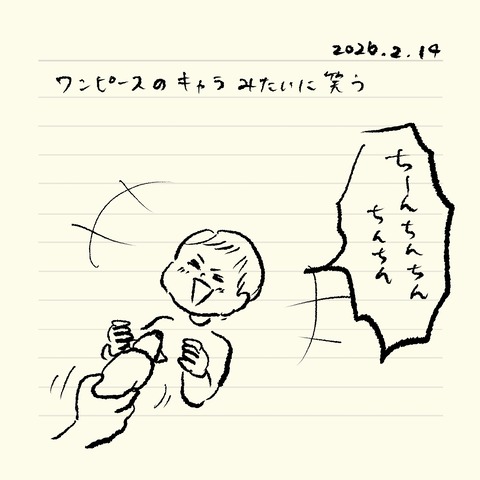 2026.2.14
ワンピースのキャラみたいに笑う
ちーんちんちん
ちんちん